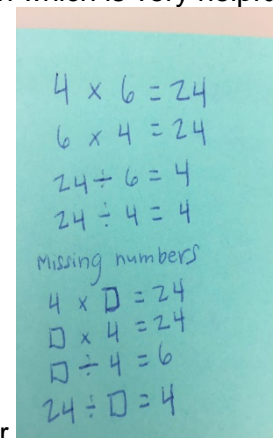 4 × 6 = 24
6 × 4 = 24
24 ÷ 6 = 4
24 ÷ 4 = 4
Missing numbers
4 × □ = 24
□ × 4 = 24
□ ÷ 4 = 6
24 ÷ □ = 4